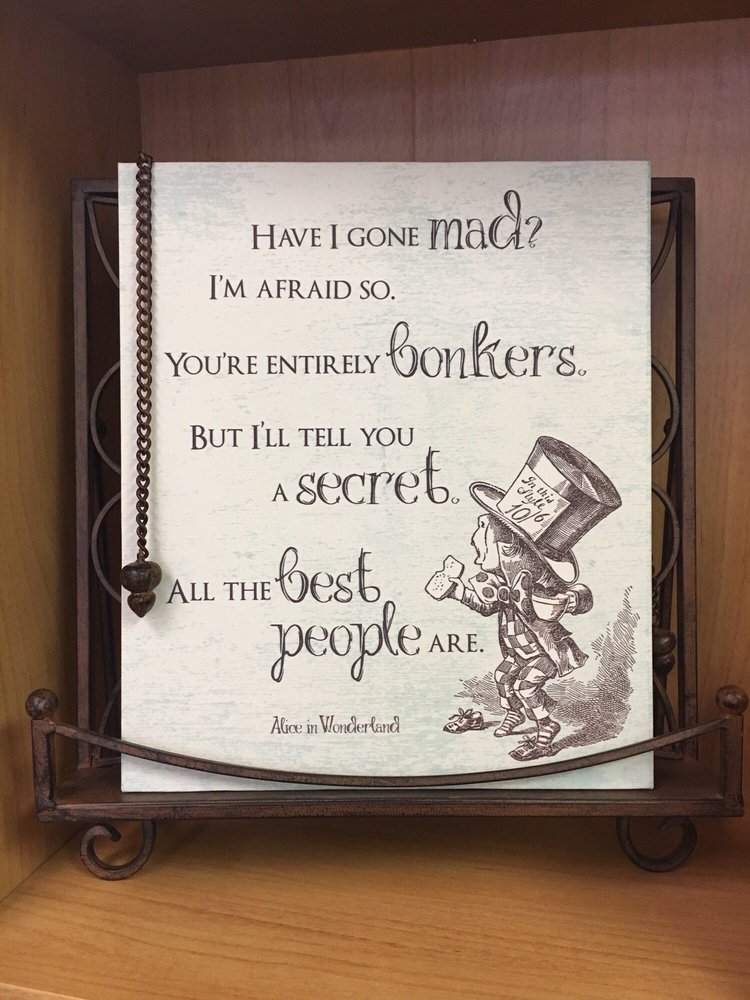 HAVE I GONE mad?
I'M AFRAID SO.
YOU'RE ENTIRELY bonkers.
BUT I'LL TELL YOU
A secret.
ALL THE best
people ARE.
Alice in Wonderland
In this
Style
10/6